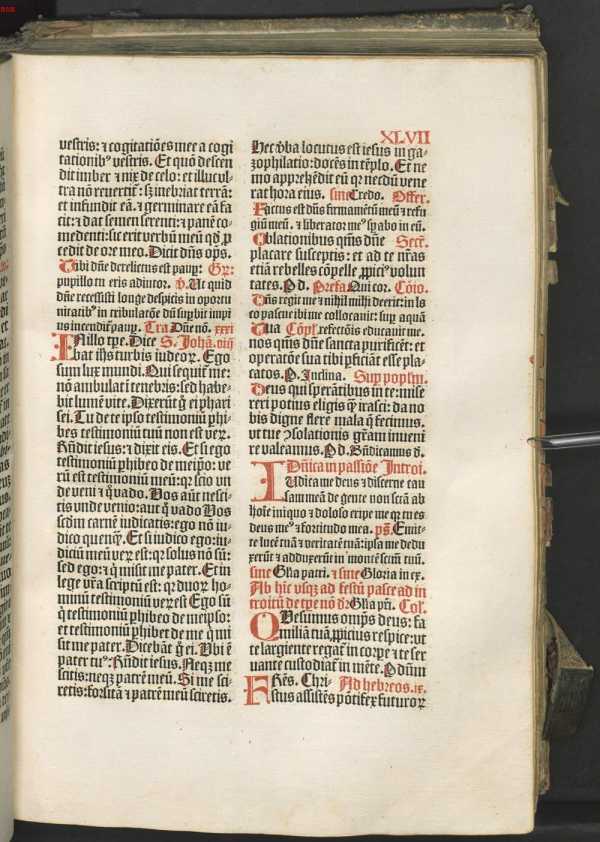 XLVII
vestris: ⁊ cogitatiões mee a cogi
tationibꝰ vestris. Et quō descen
dit imber ⁊ nix de celo: et illuc ul
tra nō revertit᷑: sꝫ inebriat terrā:
et infundit eā, ⁊ germinare eā fa
cit: ⁊ dat semen serenti: ⁊ panē co
medenti: sic erit verbū meū qd̓ p̱
cedit de ore meo. Dicit dn̄s om̄ps.
Tibi dn̄e derelictus est paup̱: Gr̄:
pupillo tu eris adiutor. v̓. Ut quid
dn̄e recessisti longe despicis in oportu
nitatibꝰ in tribulatōe dū sup̱bit impi
us incendit᷑ paup̱. Tra Dn̄e nō. xxxi
IN illo tp̄e. Dice S. Johā. viij
bat ih̄s turbis iudeoꝝ. Ego
sum lux mundi. Qui sequit᷑ me:
nō ambulat ī tenebris: sed habe-
bit lumē vite. Dixerūt g̊ ei phari
sei. Tu de te ipso testimoniū p̱hi
bes testimoniū tuū non est veꝝ.
Rn̄dit iesus: ⁊ dixit eis. Et si ego
testimoniū p̱hibeo de meip̄o: ve
rū est testimoniū meū: qꝛ scio un
de veni ⁊ q̊ vado. Vos aūt nesci-
tis unde venio: aut q̊ vado Vos
scd̓m carnē iudicatis: ego nō iu-
dico quenq̄. Et si iudico ego: iu-
diciū meū veꝝ est: qꝛ solus nō sū:
sed ego: ⁊ q̇ misit me pater. Et in
lege vr̄a scriptū est: qꝛ duoꝝ ho-
minū testimoniū veꝝ est Ego sū
q̇ testimoniū p̱hibeo de meipso:
et testimoniū p̱hibet de me q̇ mi
sit me pater. Dicebāt g̊ ei. Ubi ē
pater tuꝰ: Rn̄dit iesus. Neqꝫ me
scitis: neqꝫ patrē meū. Si me sci-
retis: forsitā ⁊ patrē meū sciretis.
Hec v̓ba locutus est iesus in ga-
zophilatio: docēs in tēplo. Et ne
mo apprehēdit eū qꝛ necdū vene
rat hora eius. sine Credo. Offer.
Factus est dn̄s firmamētū meū ⁊ refu
giū meū. ⁊ liberator meꝰ sp̱abo in eū.
Oblationibus qm̄s dn̄e Secē.
placare susceptis: et ad te nr̄as
etiā rebelles cōpelle p̱piciꝰ volun
tates. P d. Prefa Qui cor. Cōio.
Dn̄s regit me ⁊ nihil mihi deerit: in lo
co pascue ibi me collocavit: sup̱ aquā
Tua Cōpl̓. refectōis educavit me.
nos qm̄s dn̄e sancta purificēt: et
operatōe sua tibi p̱ficiāt esse pla-
catos. P. Inclina. Sup pop̄lm.
Deus qui sperātibus in te: mise
reri potius eligis q̄ irasci: da no
bis digne flere mala q̄ fecimus.
ut tue ꝯsolationis gr̄am inveni
re valeamus. P d. Bn̄dicamus d.
Dn̄ica in passiōe Introi.
IUdica me deus ⁊ discerne cau
sam meā de gente non sctā. ab
hoīe iniquo ⁊ doloso eripe me qꝛ tu es
deus meꝰ ⁊ fortitudo mea. p̄s. Emit-
te lucē tuā ⁊ veritatē tuā: ipsa me dedu
xerūt ⁊ adduxerūt in montē sctm̄ tuū.
sine Gl̄ia patri. ⁊ sine Gloria in ex.
Ab hic usqꝫ ad festū pasce ad in
troitū de tp̄e nō d̓r Gl̄ia p̄ri. Col̓.
QUesumus om̄ps deus: fa
miliā tuā p̱picius respice: ut
te largiente regat᷑ in corp̱e ⁊ te ser
vante custodiat᷑ in mēte. P dn̄m
FRēs. Chri- Ad hebreos. ix.
stus assistēs pōtifex futuroꝝ